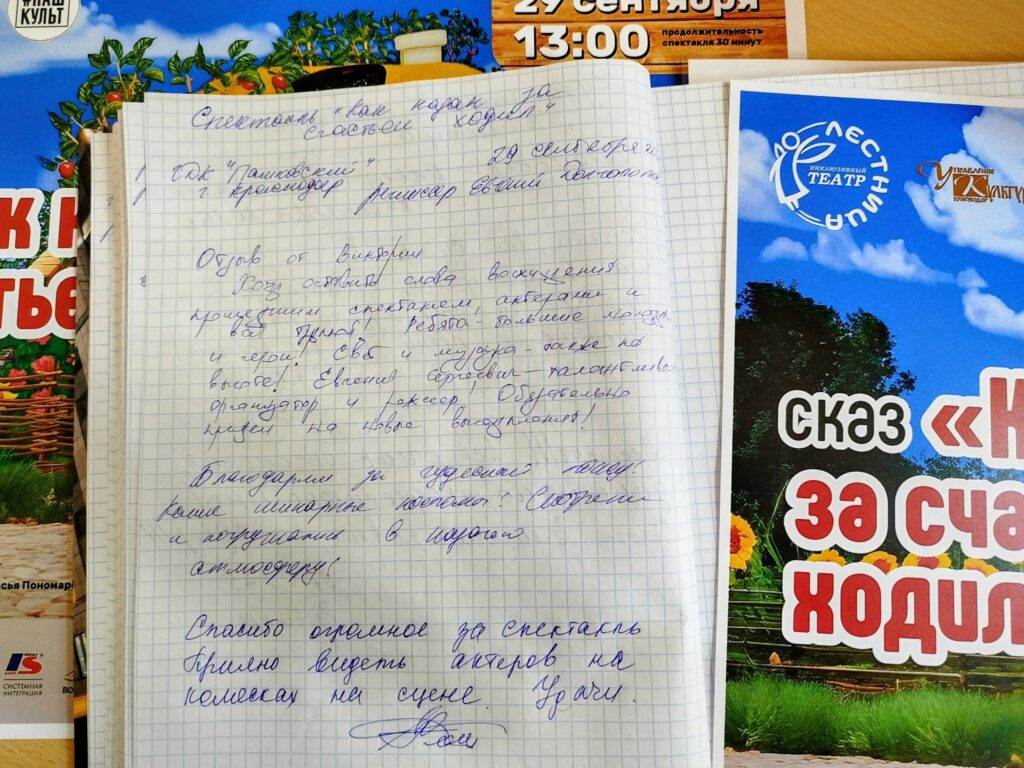 #НАШ
КУЛЬТ
29 сентября
13:00
продолжительность
спектакля 30 минут
Спектакль "Как казак за
счастьем ходил"
29 сентября
ГДК "Пашковский"
г. Краснодар режиссер Евгений
Отзыв от Виктории
Хочу оставить слова восхищения
прошедшим спектаклем, актерами и
всей труппой! Ребята - большие
и герои! Свет и музыка - также на
высоте! Евгений Сергеевич - талантливый
организатор и режиссер. Обязательно
придем на новые выступления!
Благодарим за чудесный
Какие шикарные костюмы! Смотрели
и погружались в
атмосферу!
Спасибо огромное за спектакль
Приятно видеть актеров на
колесках на сцене. Удачи.
К К
ТЬЕ
сья Пономар
СИСТЕМНАЯ
ИНТЕГРАЦИЯ
ВО
ЛЕСТНИЦА ДО
ИНКЛЮЗИВНЫЙ
ТЕАТР
УПРАВЛЕНИЕ
КУЛЬТУР
КРАСНОДАР
сказ «К
за сча
ходил